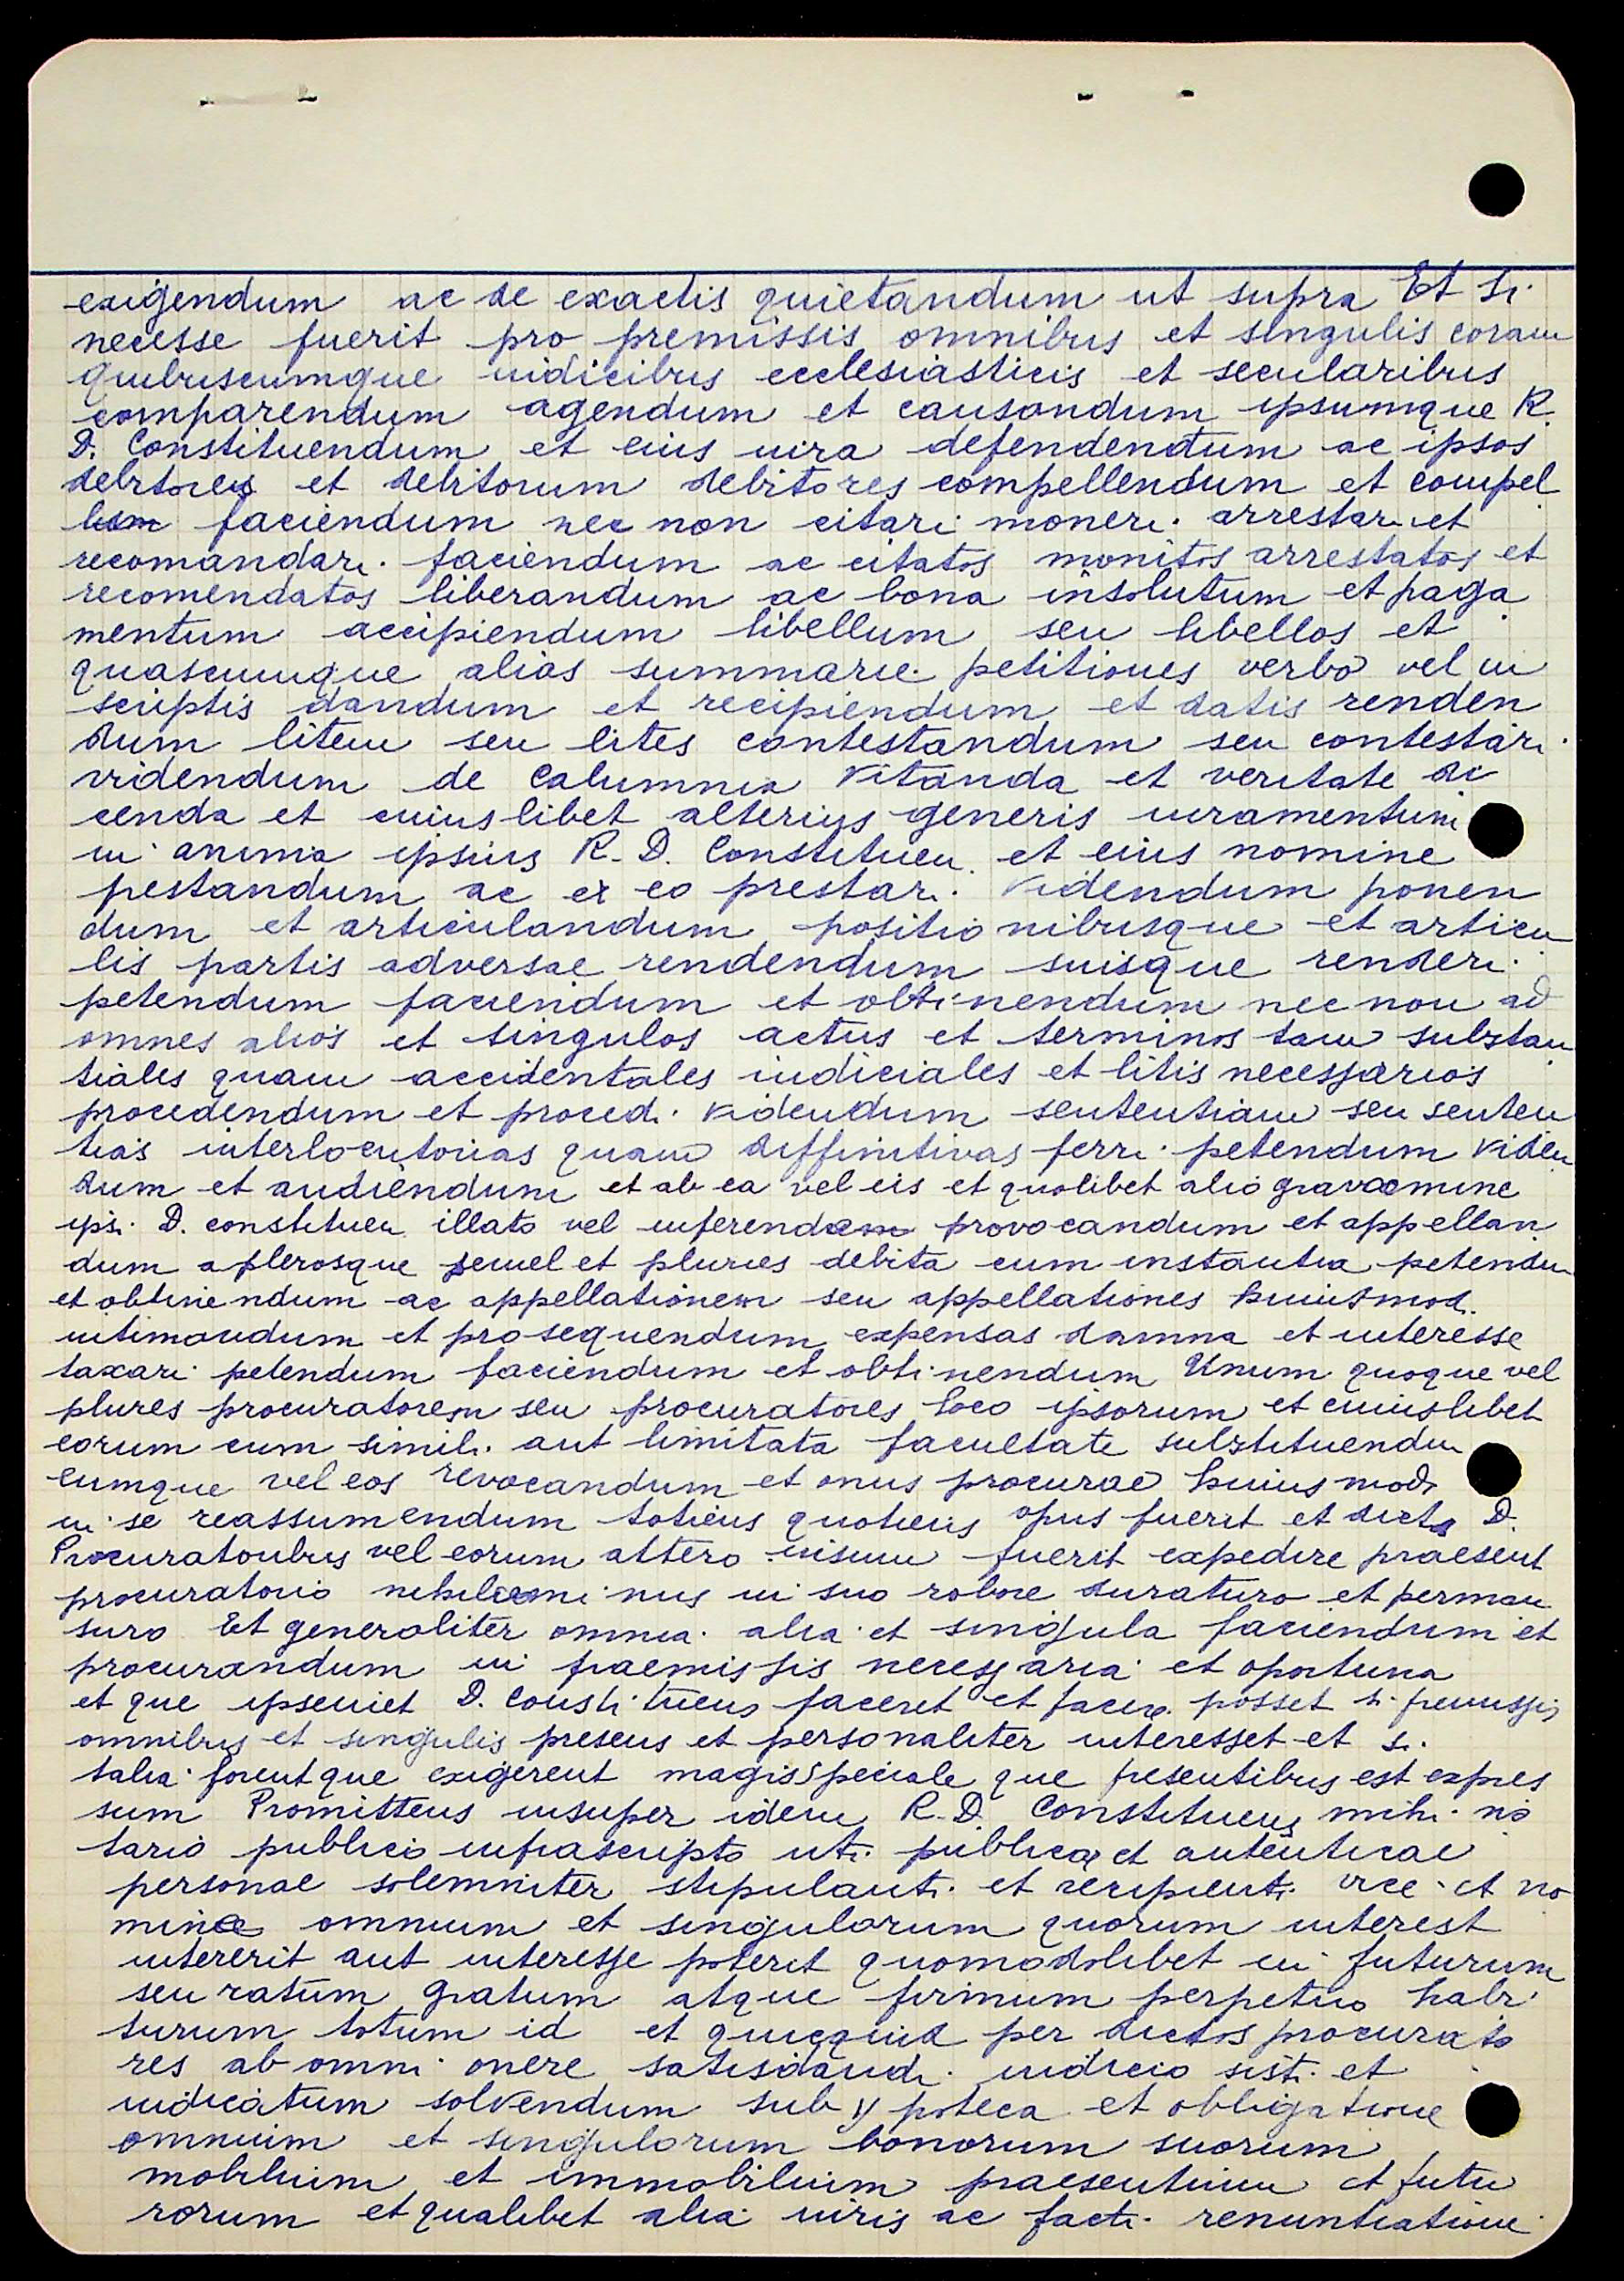 exigendum ac de exactis quietandum ut supra Et si
necesse fuerit pro premissis omnibus et singulis coram
quibuscumque iudicibus ecclesiasticis et secularibus
comparendum agendum et causandum ipsumque R.
D. Constituendum et eius iura defendendum ac ipsos
debitores et debitorum debitores compellendum et compel
faciendum nec non citari moneri arrestari et
recomandari faciendum ac citatos monitos arrestatos et
recomendatos liberandum ac bona insolutum et paga
mentum accipiendum libellum seu libellos et
quascumque alias summarie petitiones verbo vel in
scriptis dandum et recipiendum et datis renden
dum litem seu lites contestandum seu contestari
videndum de calumnia vitanda et veritate di
cenda et cuiuslibet alterius generis iuramentum
in anima ipsius R. D. Constituen. et eius nomine
pestandum ac ex eo prestari videndum ponen
dum et articulandum positionibusque et articu
lis partis adversae rendendum suisque renderi
petendum faciendum et obtinendum nec non ad
omnes alios et singulos actus et terminos tam substan
tiales quam accidentales iudiciales et litis necessarios
procedendum et procedi videndum sententiam seu senten
tias interlocutorias quam diffinitivas ferri petendum viden
dum et audiendum et ab ea vel eis et quolibet alio gravamine
ipsi D. constituen. illato vel inferendam provocandum et appellan
dum aplerosque semel et pluries debita cum instantia petendu
et obtinendum ac appellationem seu appellationes huiusmod.
intimandum et prosequendum expensas damna et interesse
taxari petendum faciendum et obtinendum Unum quoque vel
plures procuratorem seu procuratores loco ipsorum et cuiuslibet
eorum cum simili aut limitata facultate substituendu
eumque vel eos revocandum et onus procurae huius modi
in se reassumendum totiens quotiens opus fuerit et dicta D.
Procuratoribus vel eorum altero visum fuerit expedire praesent
procuratorio nihilominus in suo robore duraturo et perman
suro Et generaliter omnia alia et singula faciendum et
procurandum in praemissis necessaria et oportuna
et que ipsemet D. Constituens faceret et facere posset si premissis
omnibus et singulis presens et personaliter interesset et si
talia forent que exigerent magis speciale que presentibus est expres
sum Promittens insuper idem R. D. Constituens mihi no
tario publico infrascripto uti publicae et autenticae
personae solemniter stipulanti et recipienti vice et no
mine omnium et singulorum quorum interest
intererit aut interesse poterit quomodolibet in futurum
seu ratum gratum atque firmum perpetuo habi
turum totum id et quicquid per dictos procurato
res ab omni onere satisdandi iudicio sisti et
iudicatum solvendum sub ypoteca et obligatione
omnium et singulorum bonorum suorum
mobilium et immobilium praesentium et futu
rorum et qualibet alia iuris ac facti renuntiatione